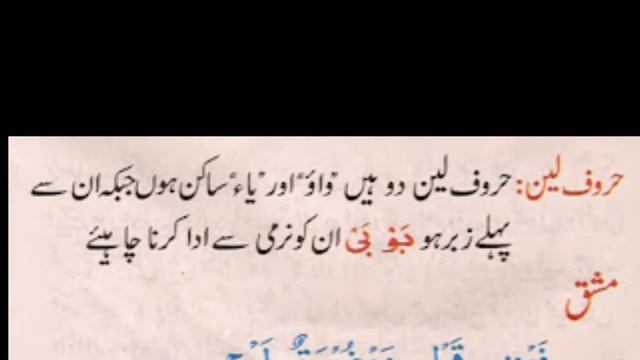 حروف لین: حروف لین دو ہیں "واؤ" اور "یاء" ساکن ہوں جبکہ ان سے
پہلے زبر ہو بَوْ بَیْ ان کو نرمی سے ادا کرنا چاہیئے
مشق